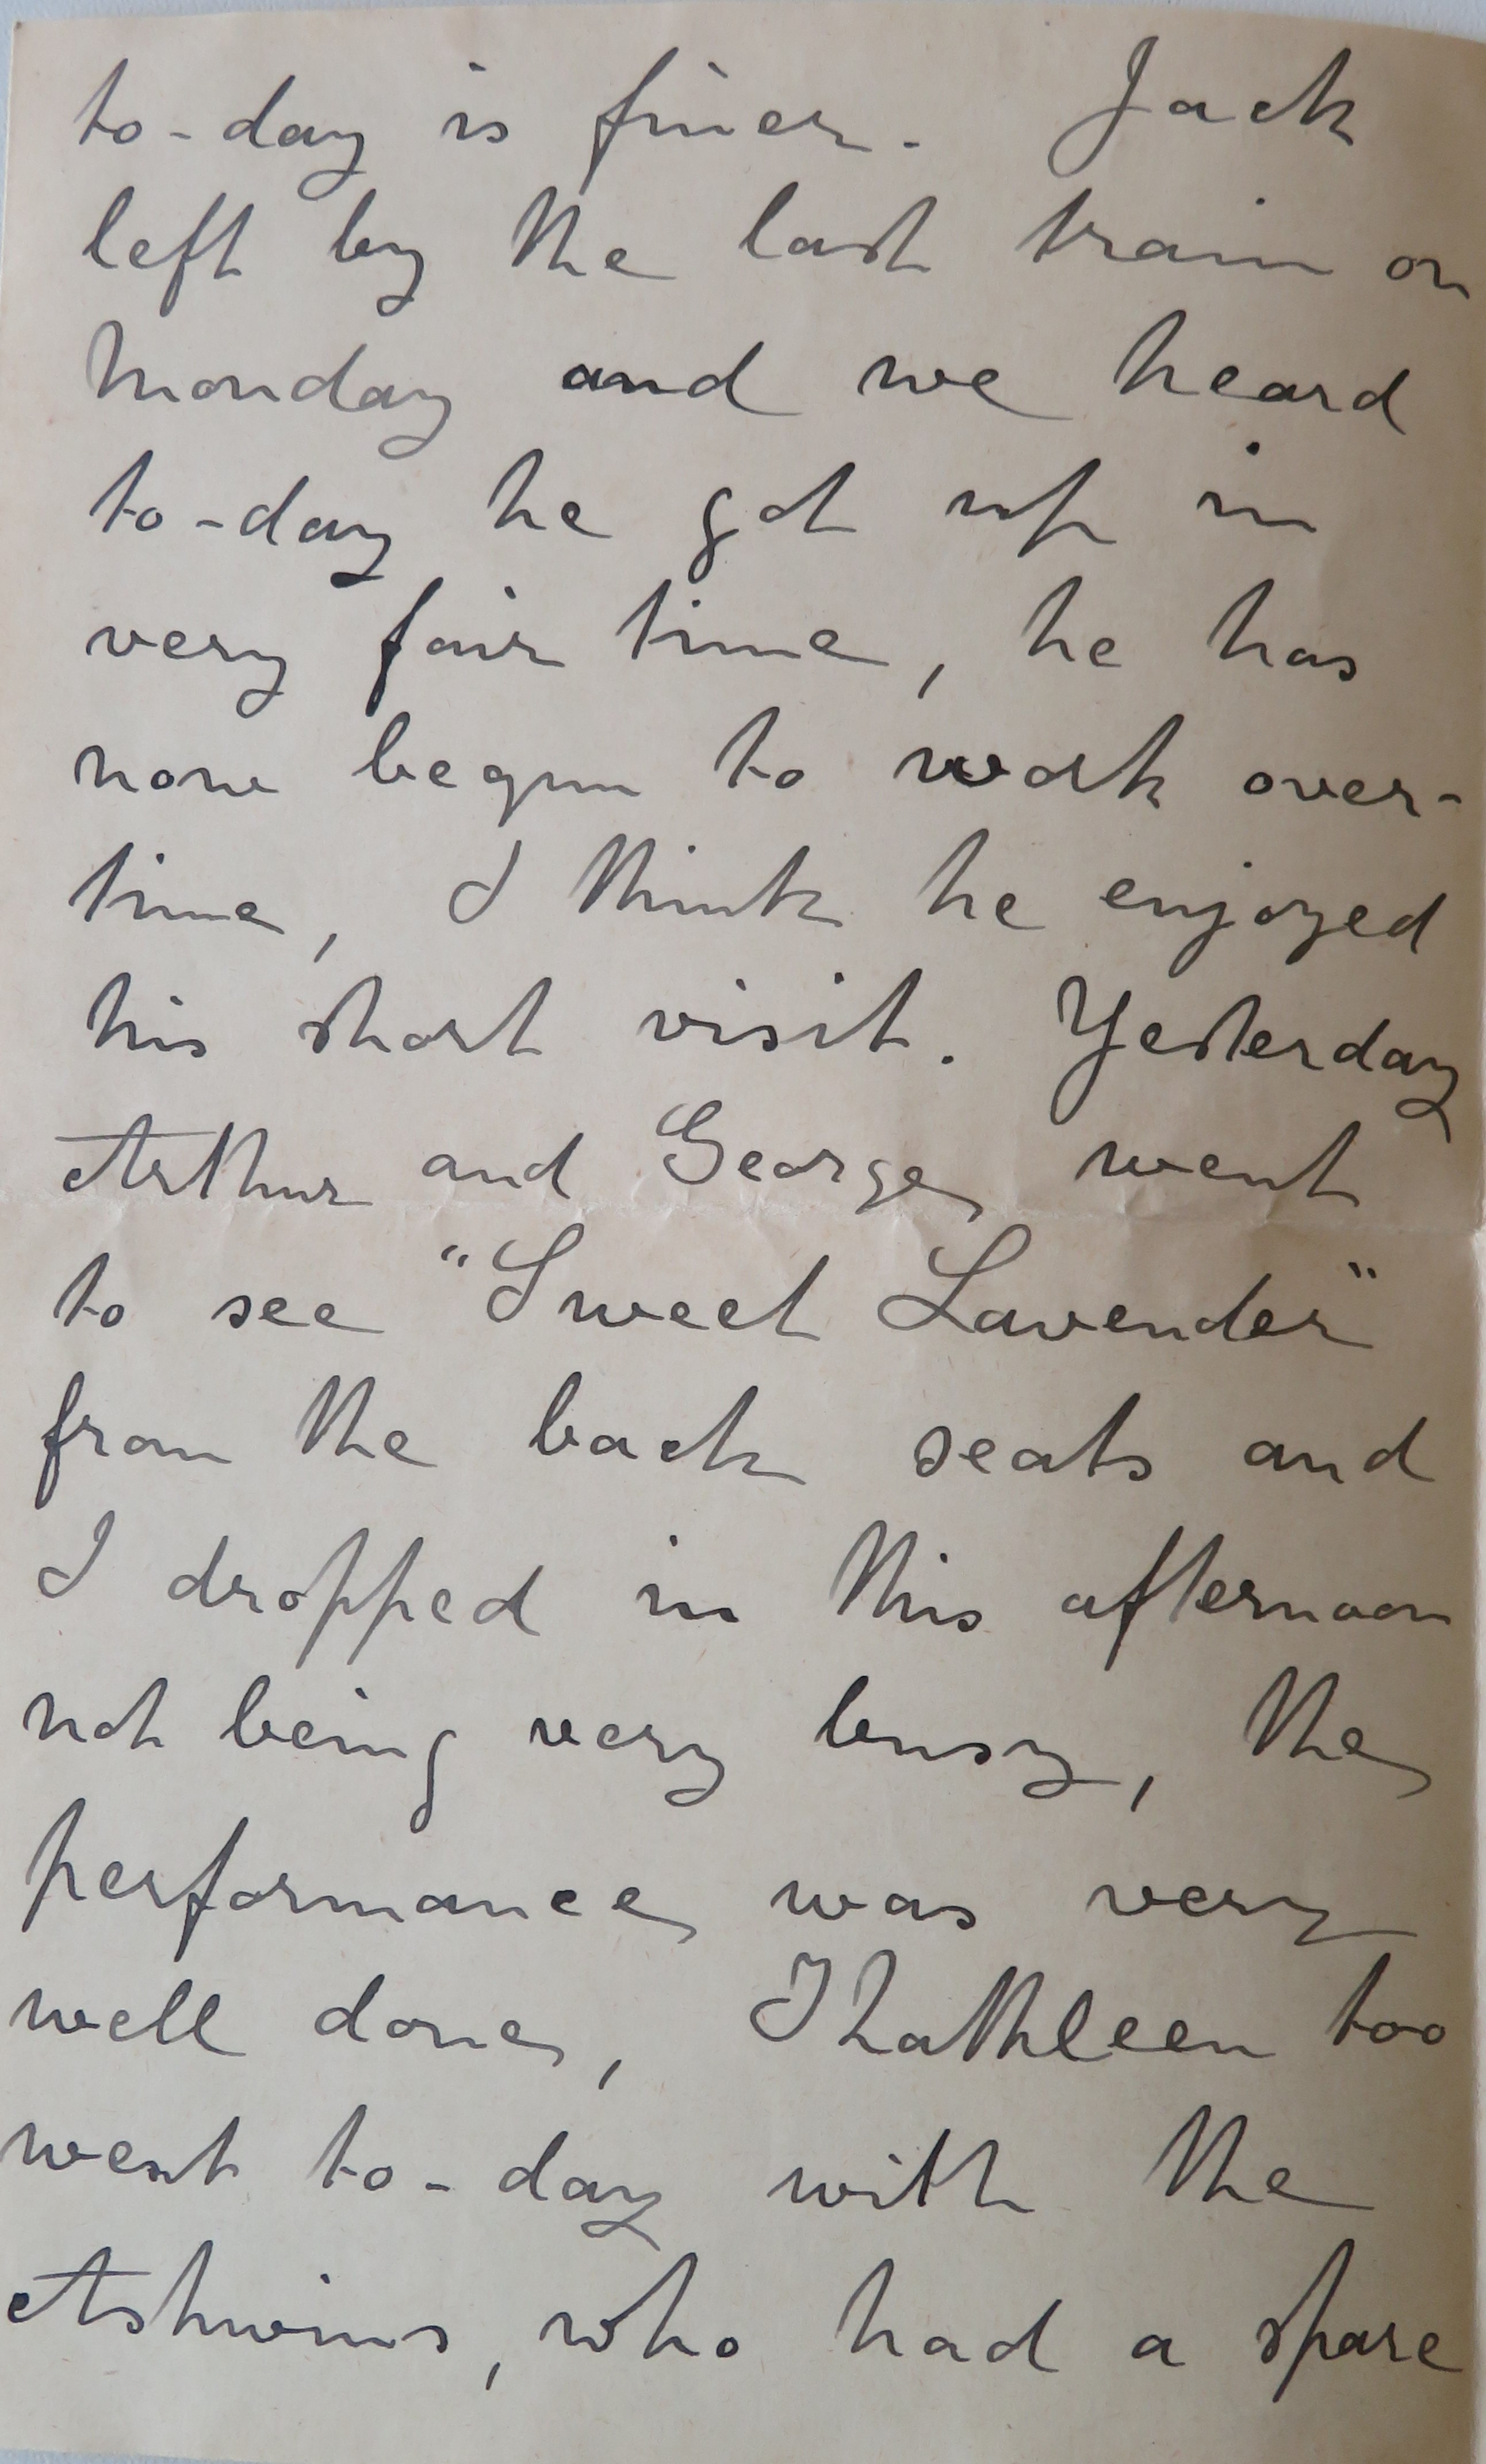 to-day is finer. Jack
left by the last train on
Monday and we heard
to-day he got up in
very fair time, he has
now begun to work over-
time, I think he enjoyed
his short visit. Yesterday
Arthur and George went
to see "Sweet Lavender"
from the back seats and
I dropped in this afternoon
not being very busy, the
performance was very
well done, Kathleen too
went to-day with the
Ashwins, who had a spare